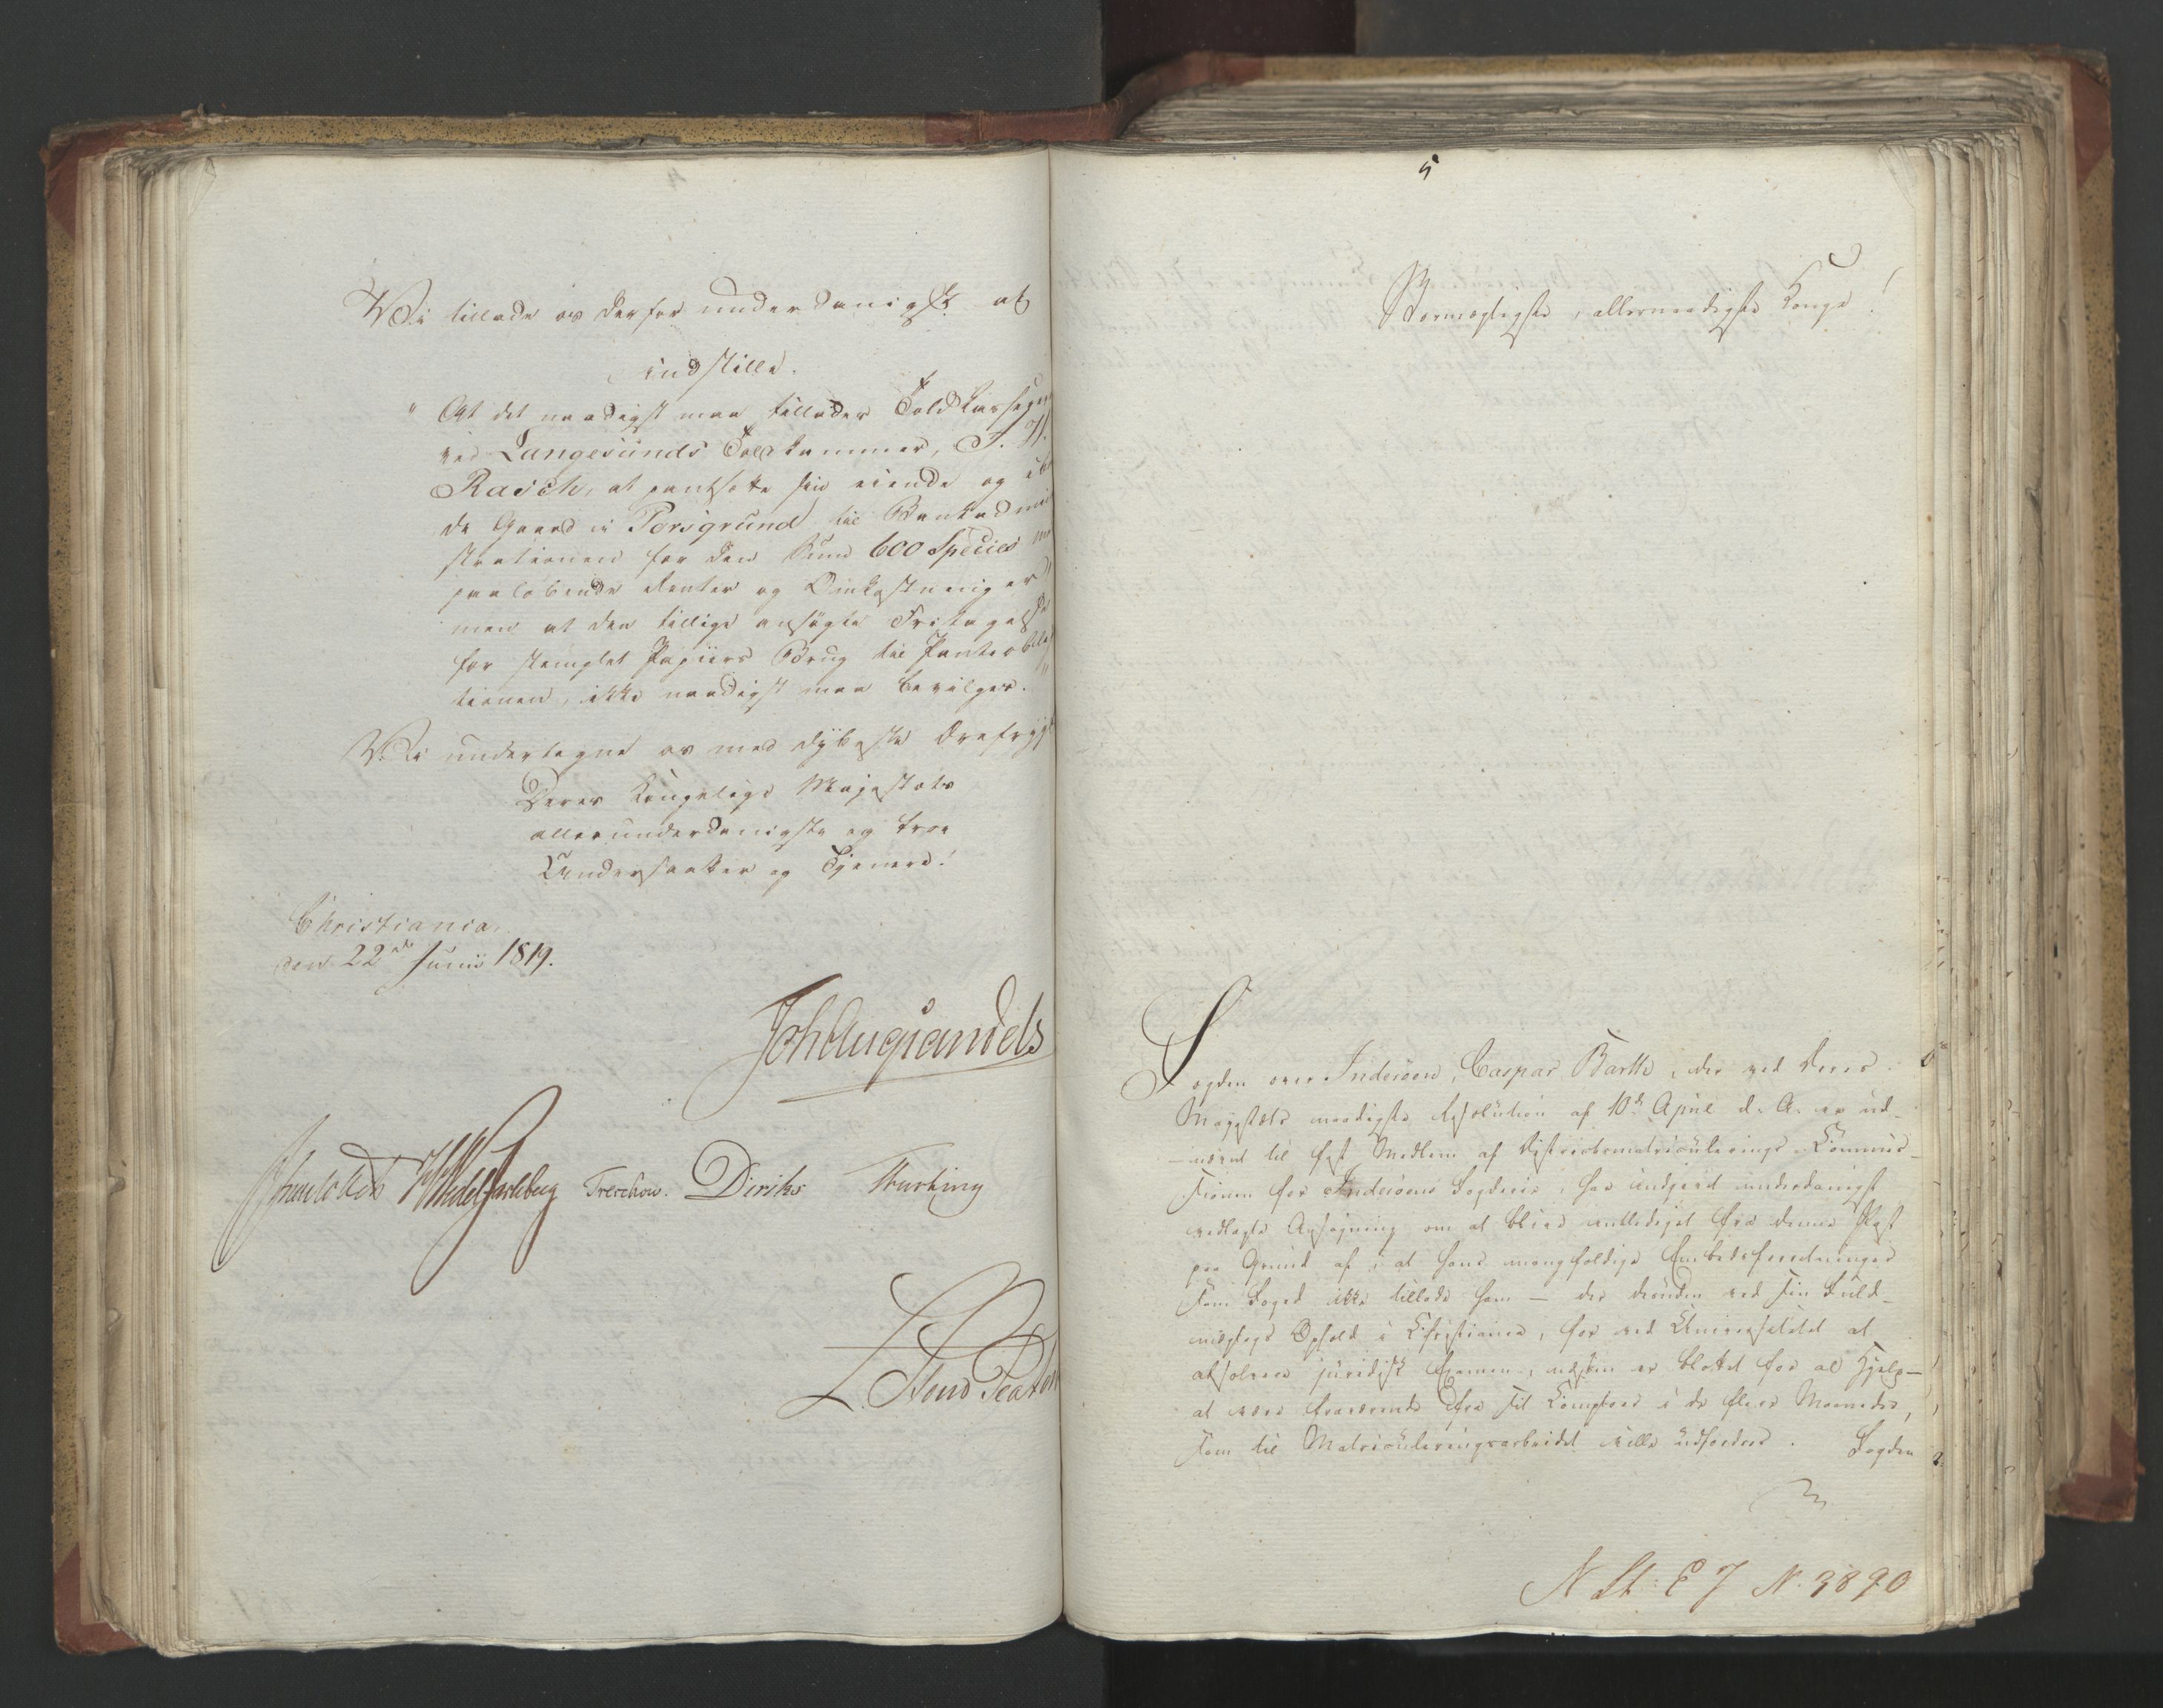 Vi tillade os derfor underdanigst at
indstille.
" At det naadigst maa tillades Toldkasserer
ved Langesunds Toldkammer, J. H.
Rasch, at pantsætte sin eiende og
de Gaard i Porsgrund til Bankadmini
strationen for den Sum 600 Species
paaløbende Renter og Omkostninger
men at den tillige ansøgte Fritagelse
for stemplet Papiirs Brug til Panteobliga
tionen, ikke naadigst maa bevilges. "
Vi undertegne os med dybeste Ærefrygt
Deres Kongelige Majestæts
allerunderdanigste og troe
Undersaatter og Tjenere!
Christiania,
den 22de Junii 1819.
Joh Aug Sandels
Sommerfeldt HWedel Jarlsberg Treschow. Diriks Mørting
L. Steud Platou
5
Stormægtigste, allernaadigste Konge!
Fogden over Inderøen, Caspar Barth, der ved Deres
Majestæts naadigste Resolution af 10de April d. A. er ud-
-nævnt til fast Medlem af Districtsmatriculerings-Commis-
sionen for Inderøens Fogderie, har indgivet underdanigst
vedlagte Ansøgning om at blive entlediget fra denne Post
paa Grund af, at hans mangfoldige Embedsforretninger
som Foged ikke tillade ham – der desuden ved sin Fuld-
mægtigs Ophold i Christiania, for ved Universitetet at
absolvere juridisk Examen, næsten er blottet for al Hjelp –
at være fraværende fra sit Comptoir i de flere Maaneder,
som til Matriculeringsarbeidet ville udfordres. Fogden
N St: E 7 N. 3890